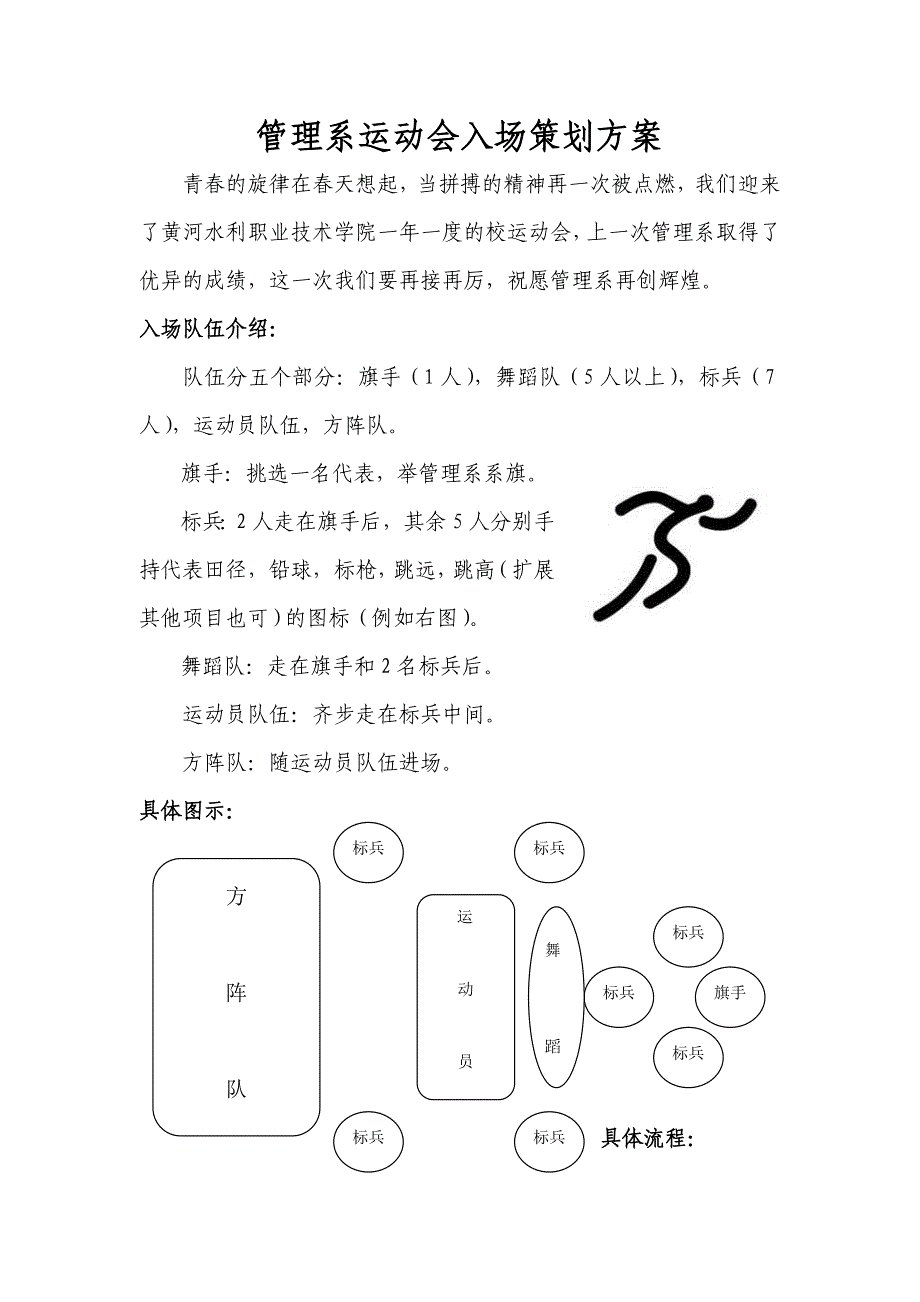 管理系运动会入场策划方案
青春的旋律在春天想起，当拼搏的精神再一次被点燃，我们迎来
了黄河水利职业技术学院一年一度的校运动会，上一次管理系取得了
优异的成绩，这一次我们要再接再厉，祝愿管理系再创辉煌。
入场队伍介绍：
队伍分五个部分：旗手（1人），舞蹈队（5人以上），标兵（7
人），运动员队伍，方阵队。
旗手：挑选一名代表，举管理系系旗。
标兵：2人走在旗手后，其余5人分别手
持代表田径，铅球，标枪，跳远，跳高（扩展
其他项目也可）的图标（例如右图）。
舞蹈队：走在旗手和2名标兵后。
运动员队伍：齐步走在标兵中间。
方阵队：随运动员队伍进场。
具体图示：
标兵
标兵
方
阵
队
运
动
员
舞
蹈
标兵
标兵
旗手
标兵
标兵
标兵
具体流程：